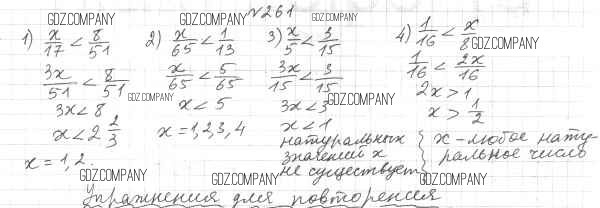 №261
GDZ.COMPANY GDZ.COMPANY GDZ.COMPANY GDZ.COMPANY
1) x/17 < 8/51
3x/51 < 8/51
3x < 8
x < 2 2/3
x = 1, 2.
2) x/65 < 1/13
x/65 < 5/65
x < 5
x = 1, 2, 3, 4
3) x/5 < 3/15
3x/15 < 3/15
3x < 3
x < 1
натуральных
значений x
не существует
4) 1/16 < x/8
1/16 < 2x/16
2x > 1
x > 1/2
x – любое нату-
ральное число
GDZ.COMPANY GDZ.COMPANY
GDZ.COMPANY GDZ.COMPANY GDZ.COMPANY
Упражнения для повторения